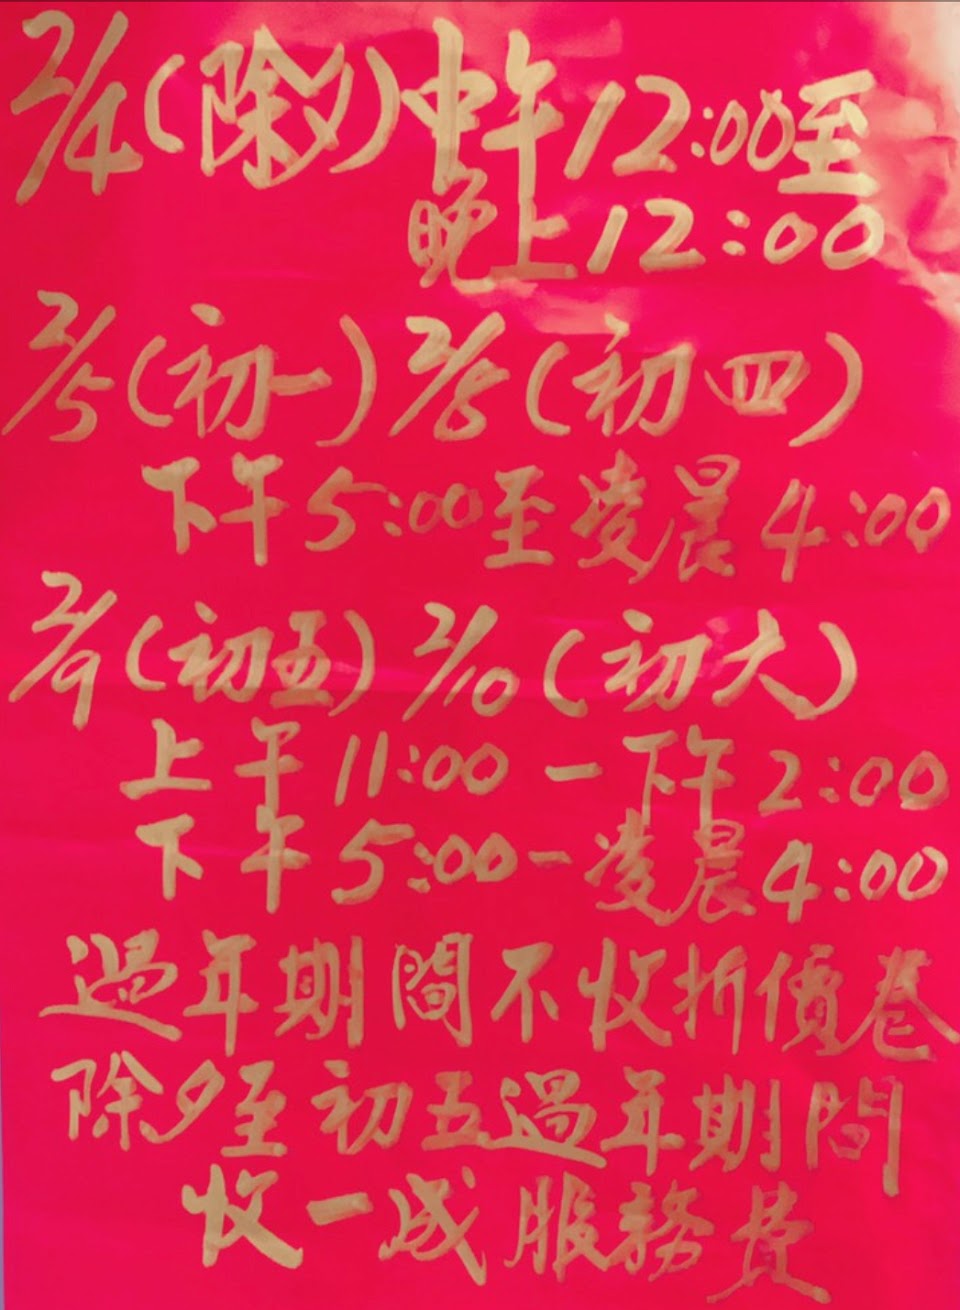 2/4(除夕)中午12:00至
晚上12:00
2/5(初一)2/8(初四)
下午5:00至凌晨4:00
2/9(初五)2/10(初六)
上午11:00-下午2:00
下午5:00-凌晨4:00
過年期間不收折價卷
除夕至初五過年期間
收一成服務費